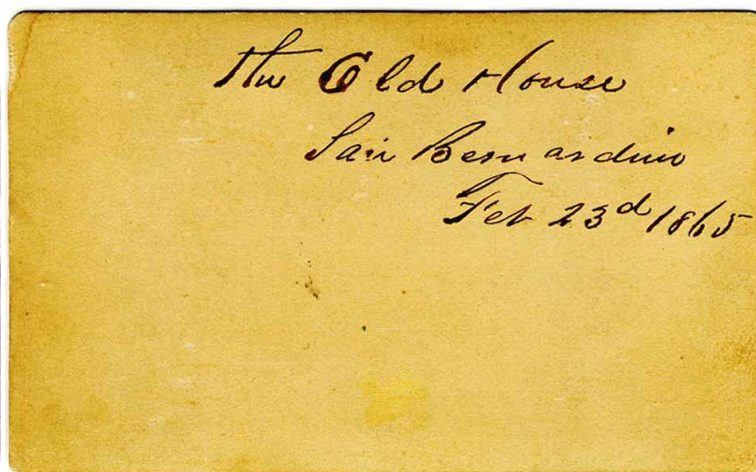 The Old House
San Bernardino
Feb 23d 1865